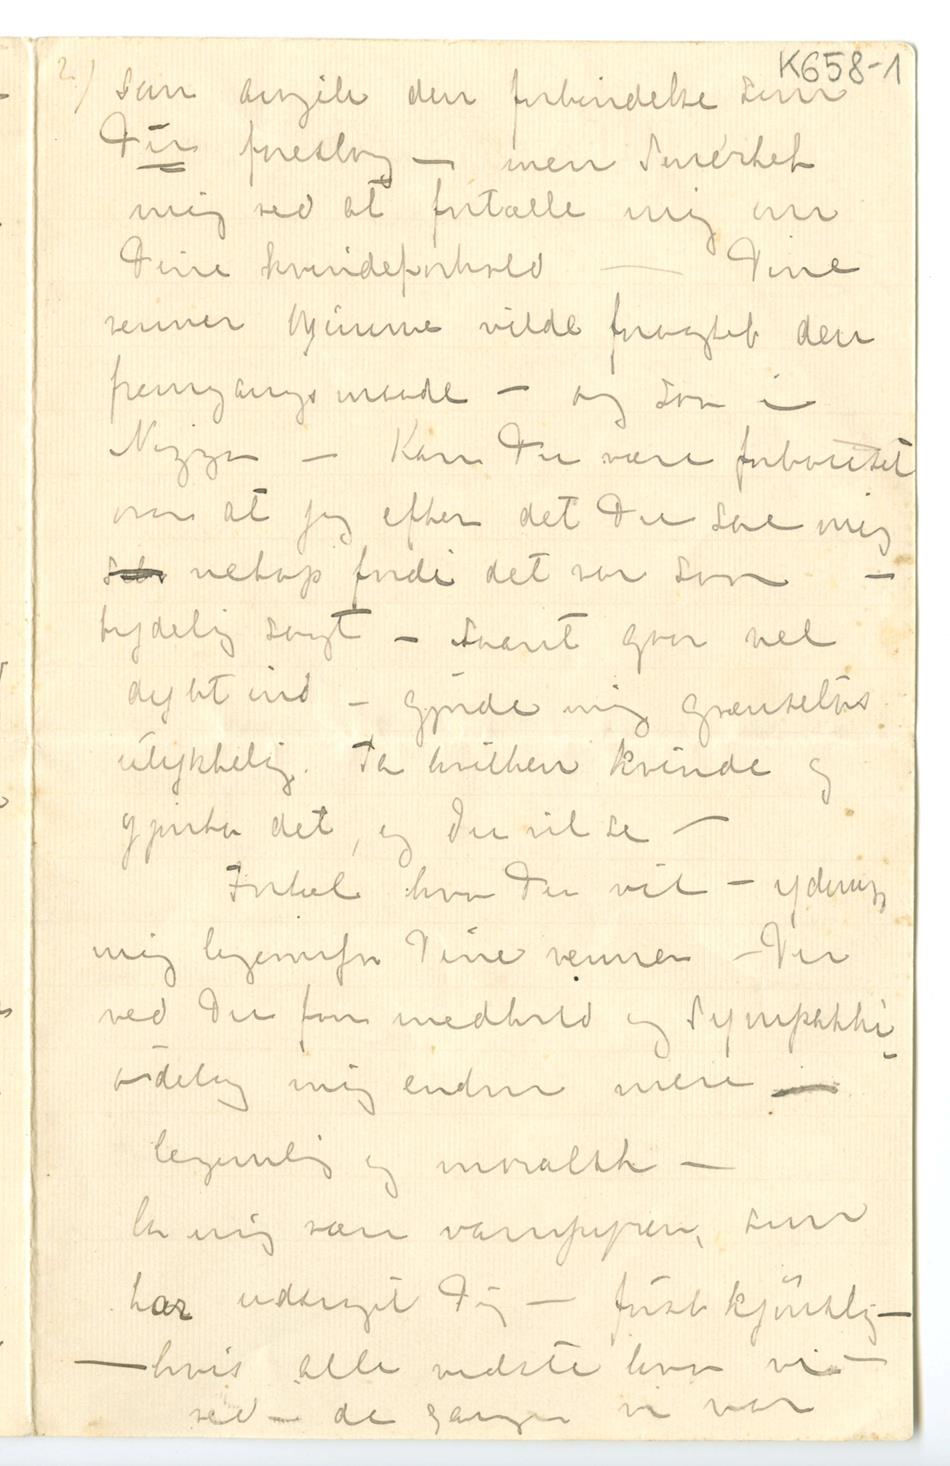 K658-1
2.)
saa angik den forbindelse som
Du foreslog — men smértet
mig ved at fortælle mig om
Dine kvindeforhold — Dine
venner hjemme vilde foragtet den
fremgangsmaade — og saa i
Nizza — Kan Du være forbauset
over at jeg efter det Du sae mig
netop fordi det var saa —
tydelig sagt — svært gaar vel
dybt ind — gjorde mig grænseløs
ulykkelig. Ta hvilken kvinde og
gjenta det, og Du vil se —
Fortæl hva Du vil —
mig Dine venner — Der
ved Du faar medhold og Sympathi
ødelæg mig endnu mere —
legemlig og moralsk —
la mig være vampyren, som
har udsuget Dig — først kjønslig —
— hvis alle vidste hvor vi —
ved — de ganger vi var